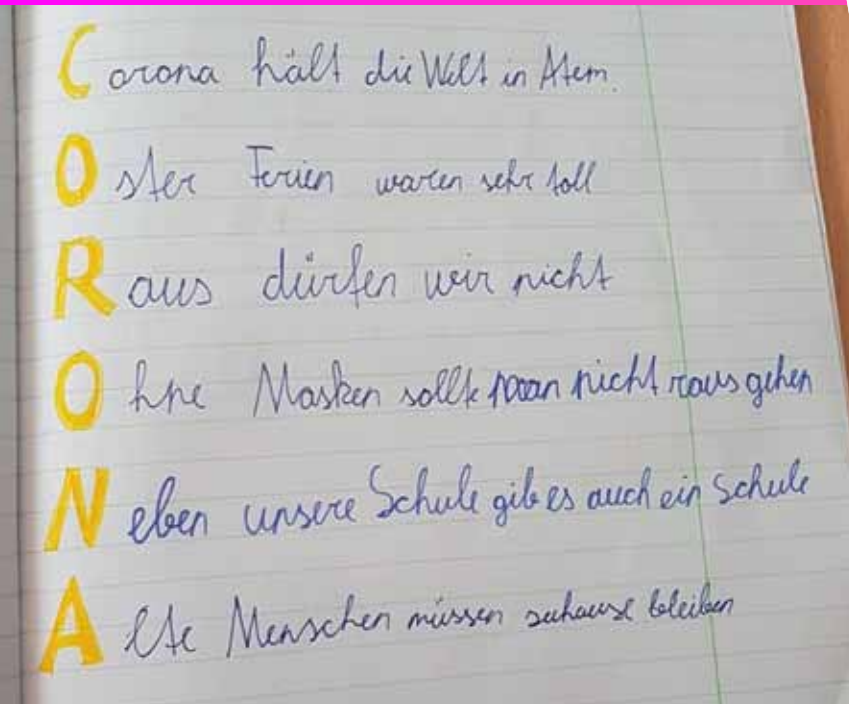 Corona hält die Welt in Atem.
Oster Ferien waren sehr toll
Raus dürfen wir nicht
Ohne Masken sollte man nicht raus gehen
Neben unsere Schule gib es auch ein Schule
Alte Menschen müssen zuhause bleiben